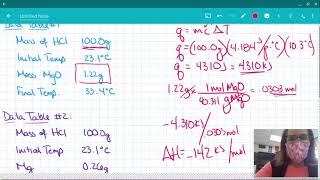 Untitled Note
Data Table #1
Mass of HCl 100.0g
Initial Temp 23.1°C
Mass MgO 1.22g
Final Temp. 33.4°C
Data Table #2:
Mass of HCl 100.0g
Initial Temp 23.1°C
Mg 0.26g
q = mcΔT
q = (100.0g)(4.184 J/g·°C)(10.3°C)
q = 4310J = 4.310kJ
1.22g × 1 mol MgO / 40.311 g MgO = .0303 mol
-4.310kJ / .0303 mol
ΔH = -142 kJ/mol